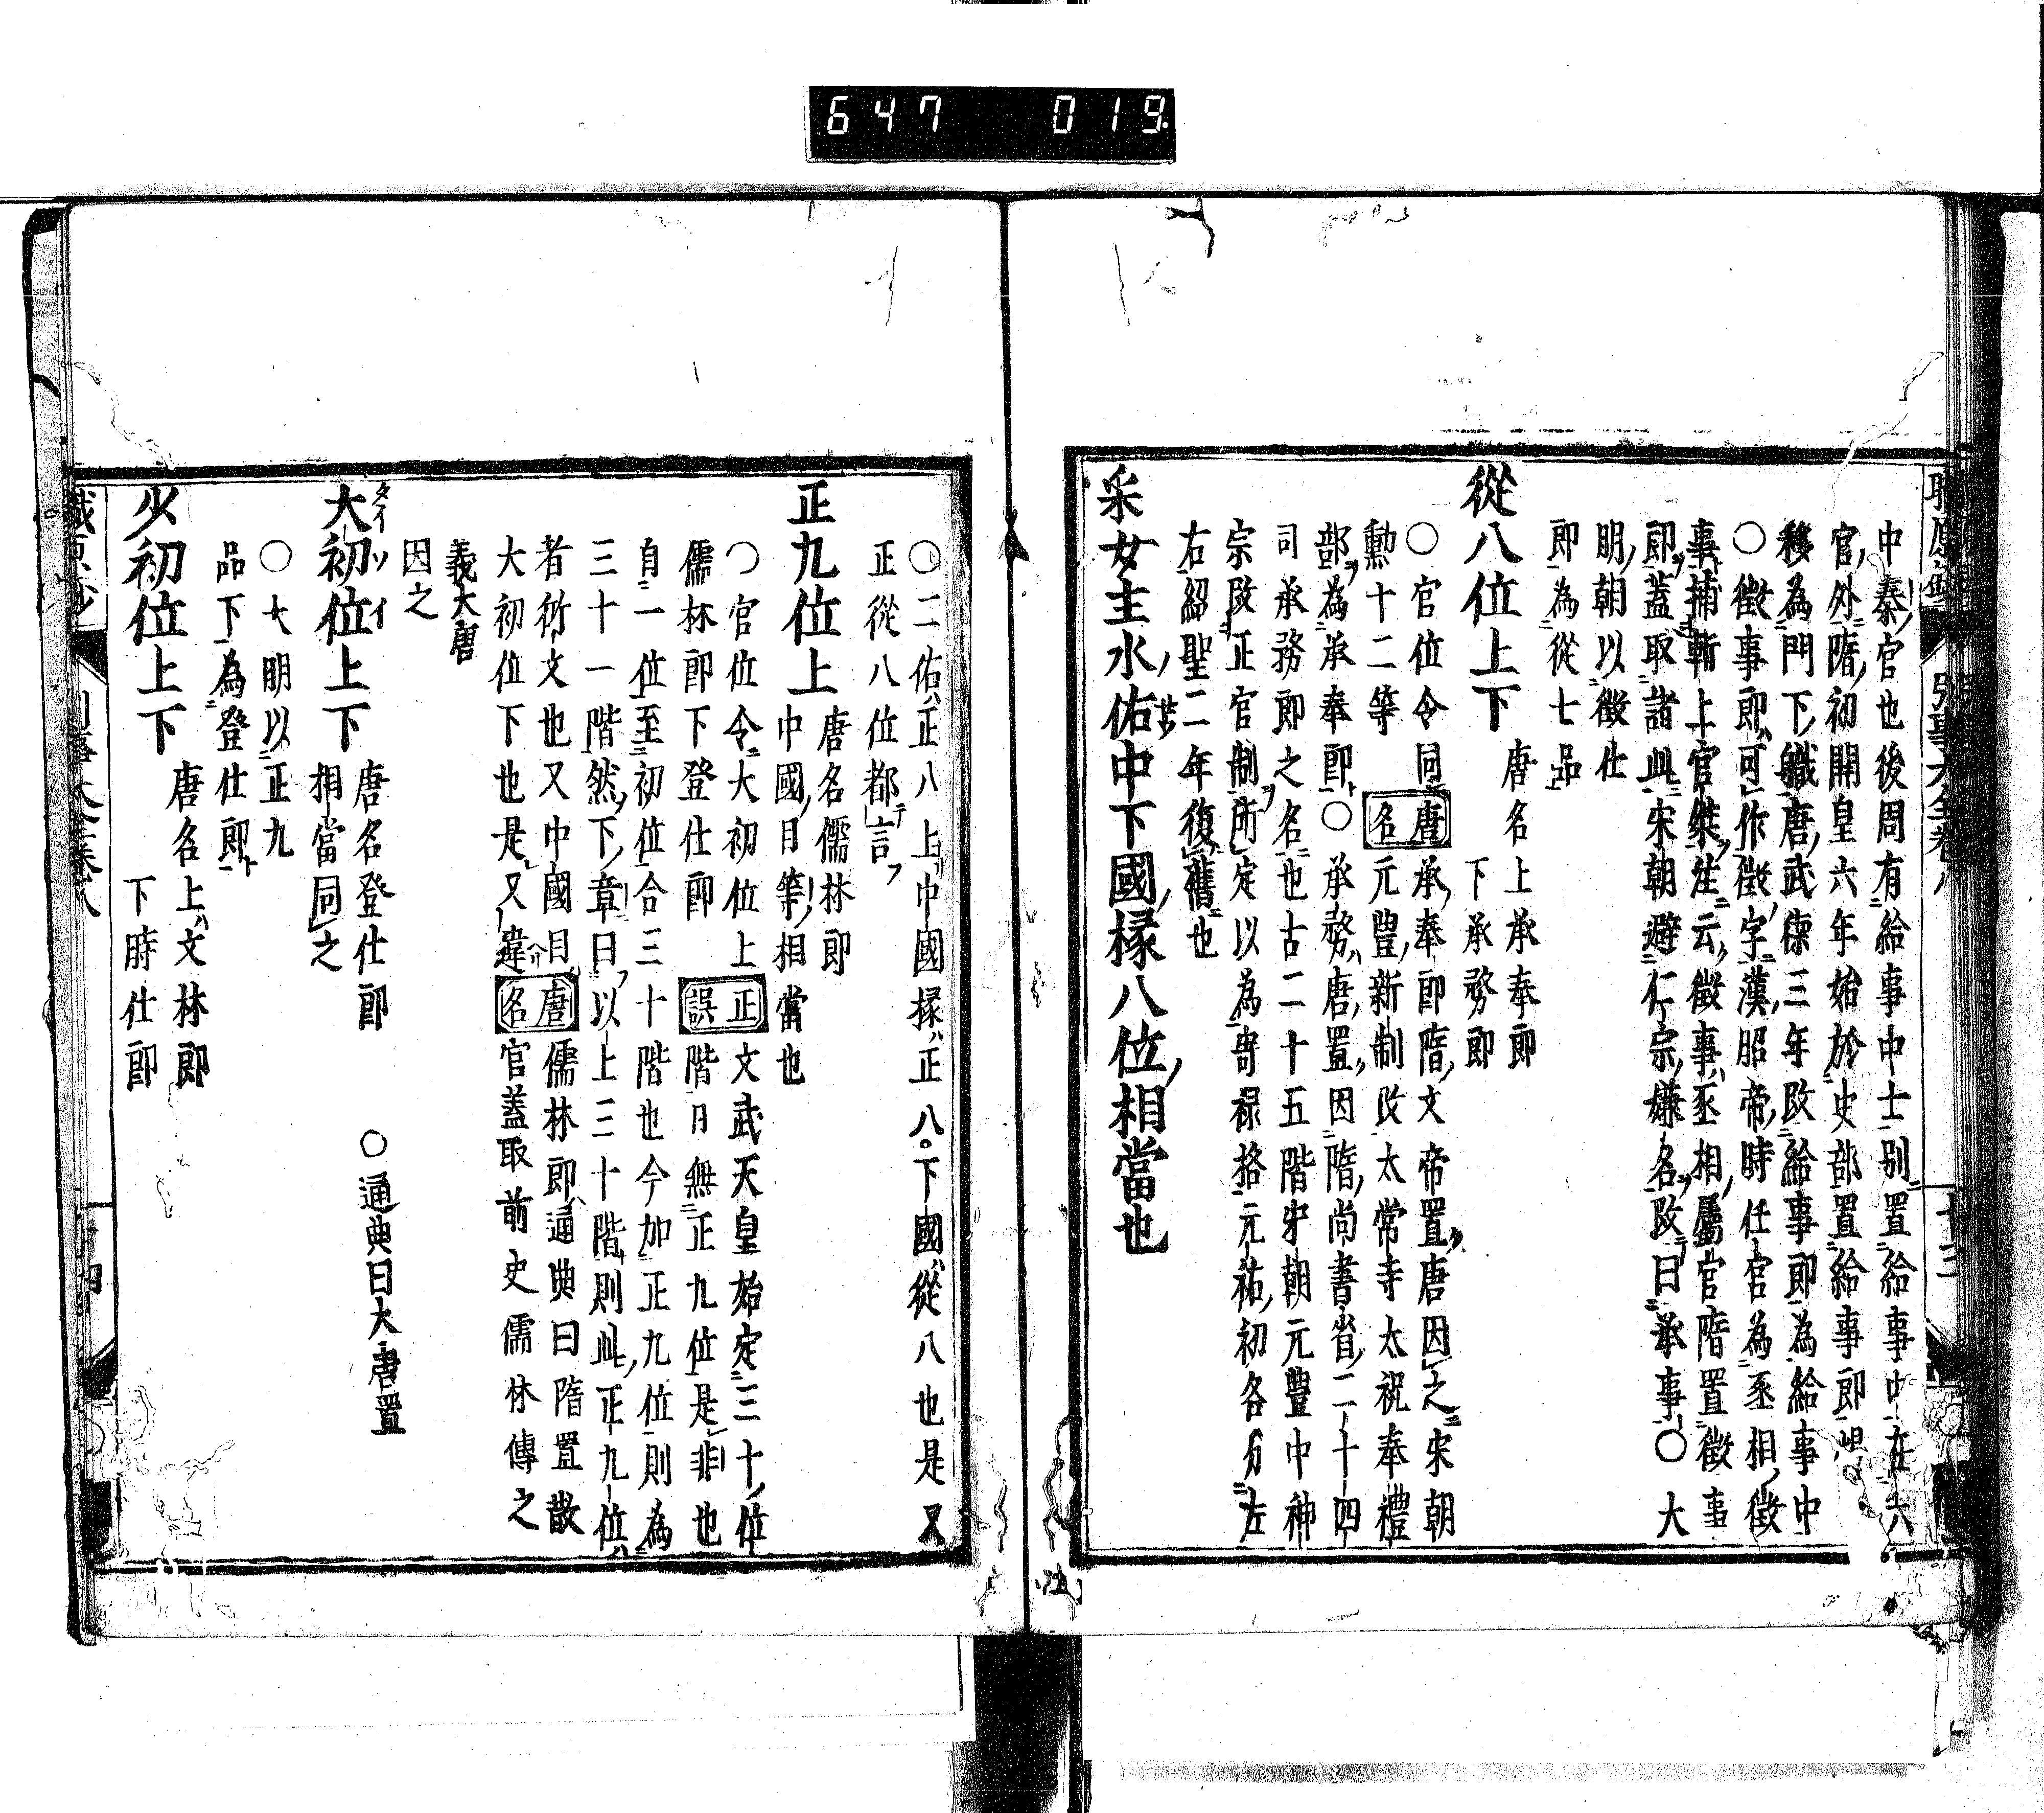 647 019
中秦官也後周有給事中士別置給事中在六
官外隋初開皇六年始於吏部置給事郎
移為門下職唐武德三年改給事郎為給事中
○徴事郎可作徴字漢昭帝時任宮為丞相徴
事捕斬上官桀注云徴事丞相屬官隋置徴事
郎蓋取諸此宋朝避仁宗嫌名改曰承事○大
明朝以徴仕
郎為從七品
從八位上下 唐名上承奉郎
下承務郎
○官位令同唐名承奉郎隋文帝置唐因之宋朝
勲十二等元豐新制改太常寺太祝奉禮
部為承奉郎○承務唐置因隋尚書省二十四
司承務郎之名也古二十五階宋朝元豐中神
宗改正官制所定以為寄禄格元祐初各分左
右紹聖二年復舊也
采女主水佑中下國掾八位相當也
○二佑正八上中國掾正八下國從八也是又
正從八位都言
正九位上 唐名儒林郎
中國目等相當也
○官位令大初位上
儒林郎下登仕郎
正誤文武天皇始定三十位
階日無正九位是非也
自一位至初位合三十階也今加正九位則為
三十一階然下章曰以上三十階則此正九位
者衍文也又中國目唐名儒林郎通典曰隋置散
大初位下也是又違官蓋取前史儒林傳之
義大唐
因之
大初位上下 唐名登仕郎
相當同之
○通典曰大唐置
○大明以正九
品下為登仕郎
少初位上下 唐名上文林郎
下時仕郎